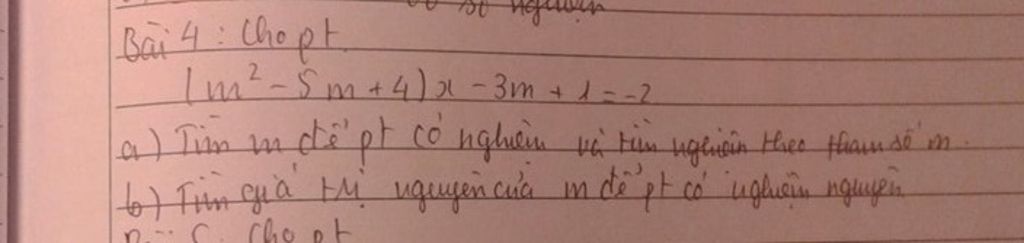 số nguyên
Bài 4 : Cho pt
(m² - 5m + 4)x - 3m + 1 = -2
a) Tìm m để pt có nghiệm và tìm nghiệm theo tham số m.
b) Tìm giá trị nguyên của m để pt có nghiệm nguyên
Cho pt